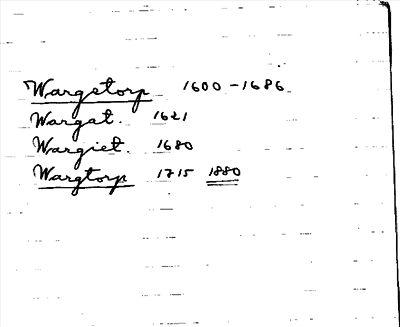 Wargetorp 1600-1686
Wargat. 1621
Wargiet. 1680
Wargtorp 1715 1880